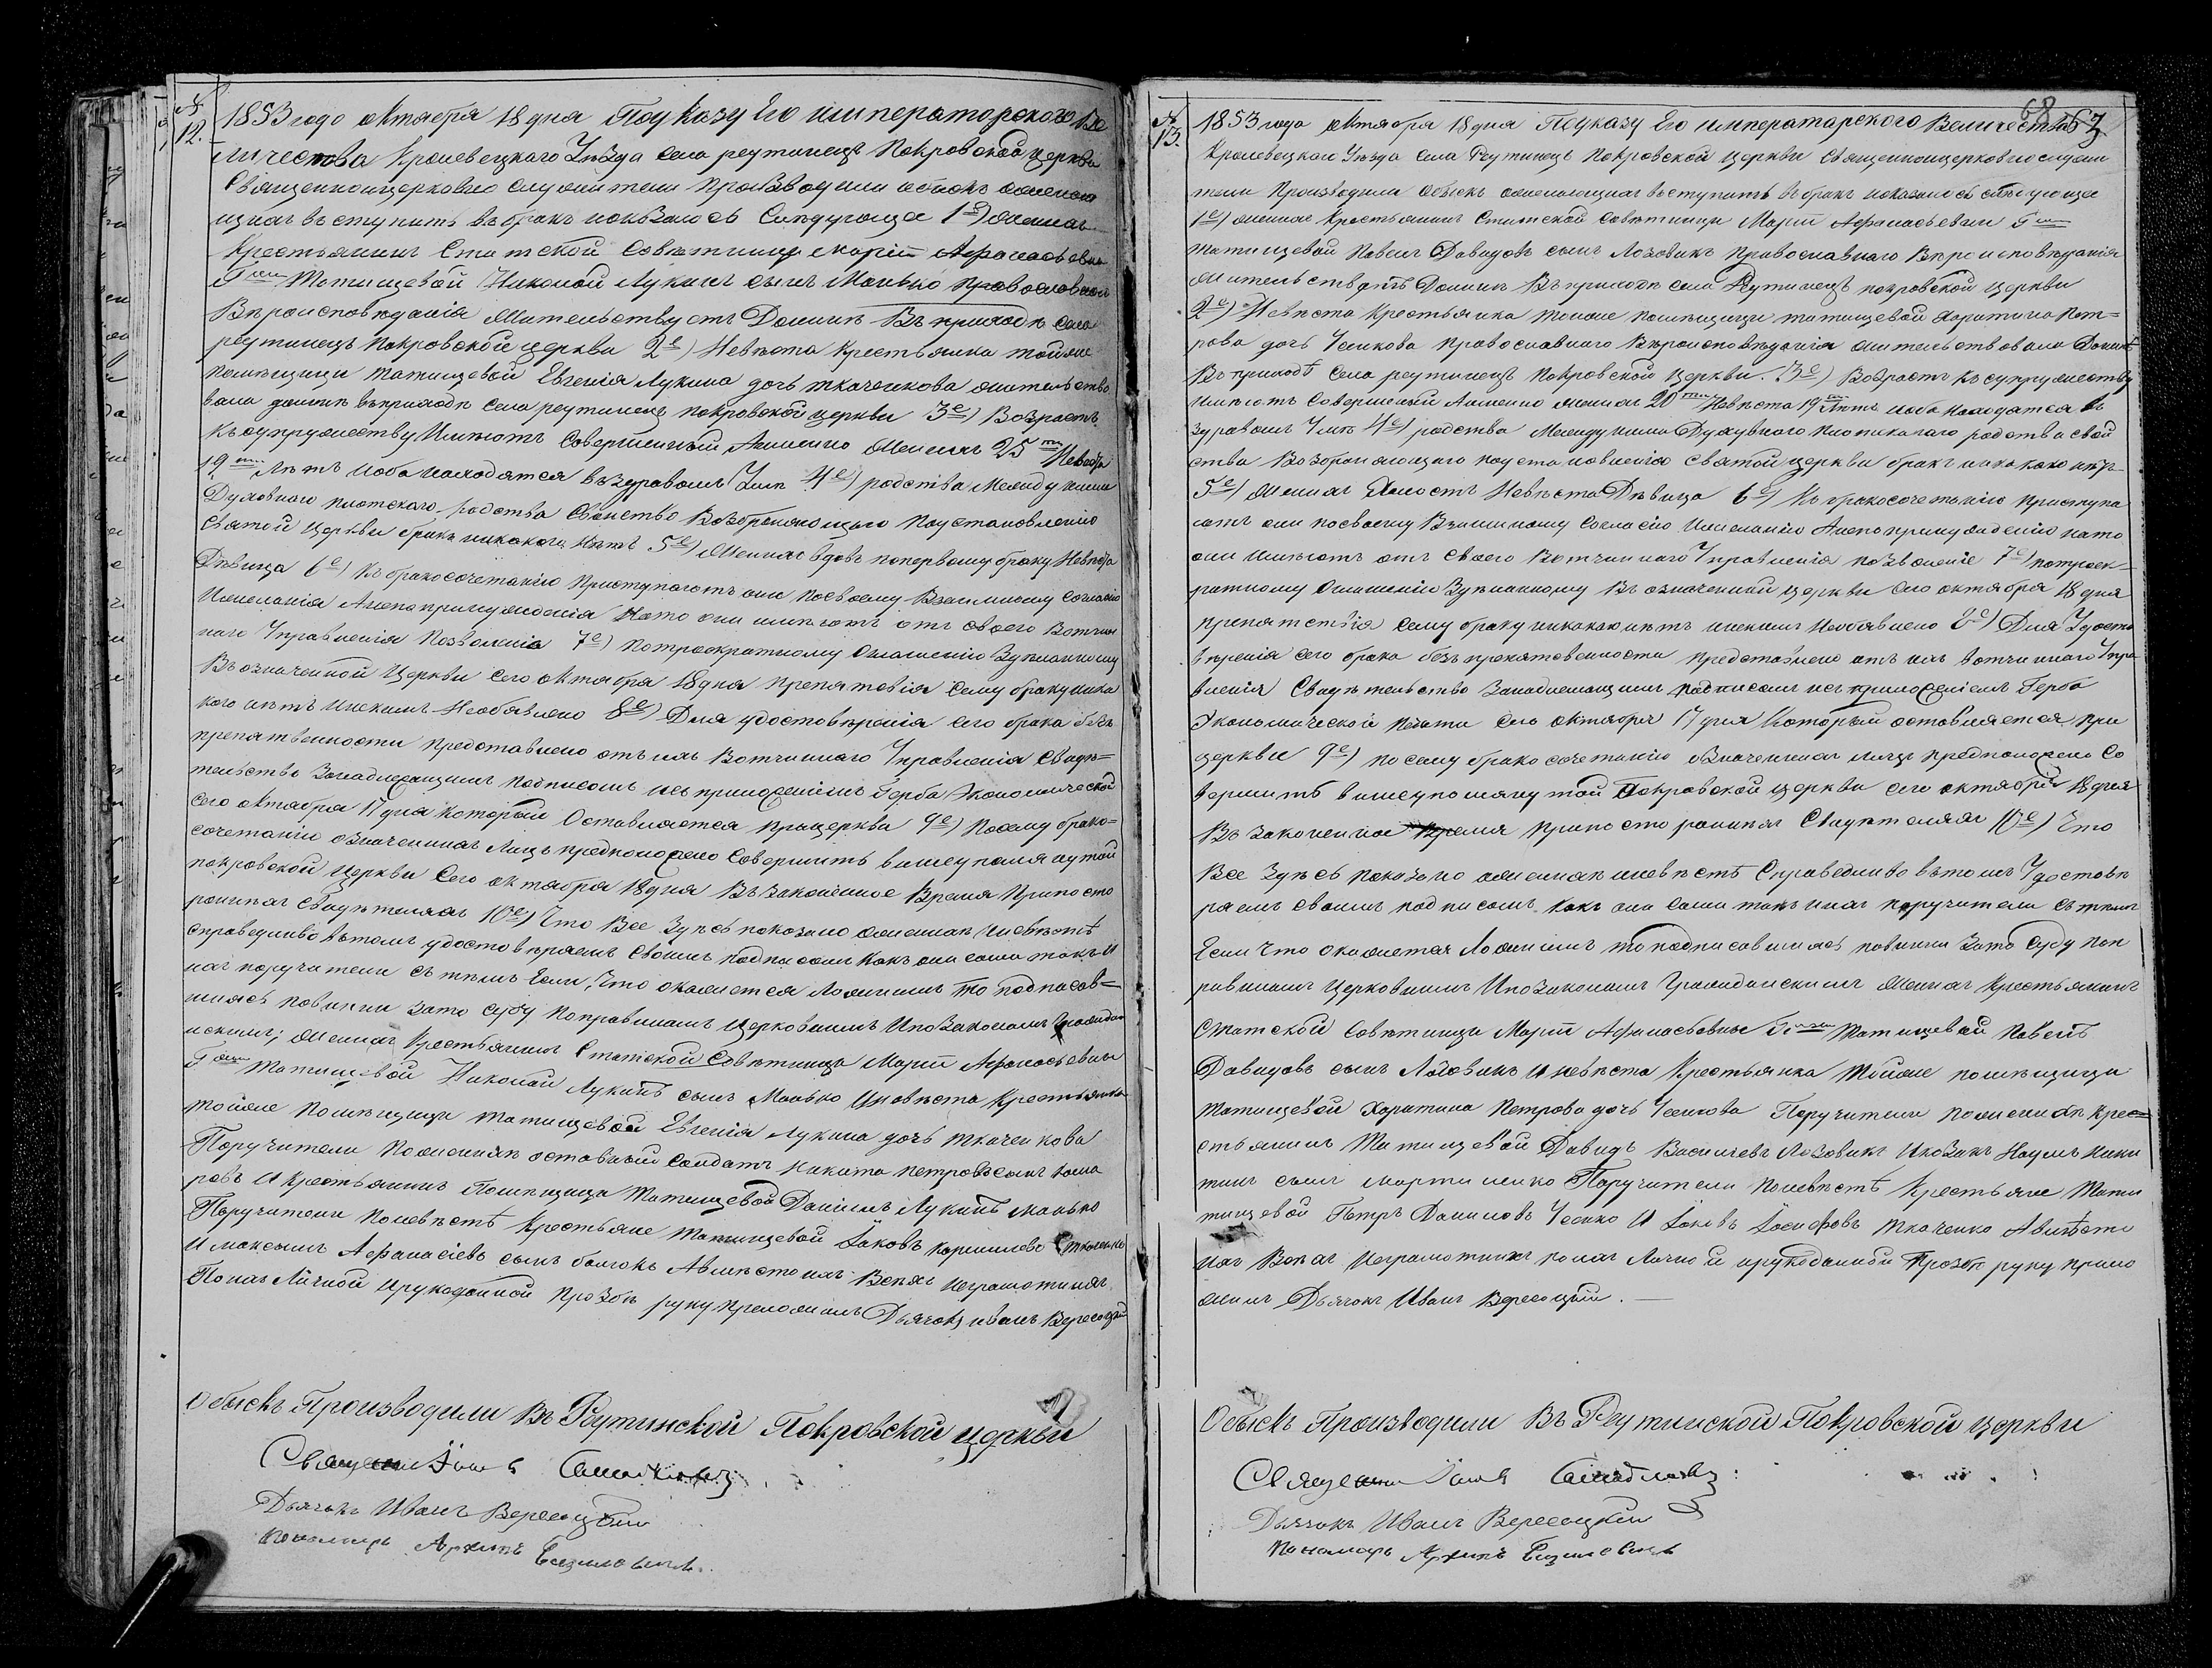 № 12.
1853 года октября 18 дня По указу Его императорского Ве
личества Кролевецкаго Уезда села реутинецъ Покровской церкви
Священноицерковно служители производили обыскъ ожелаю
щихъ вступить въ бракъ и оказалось Следующее 1е) Жених
Крестьянинъ Статской Советницы Маріи Афанасьевны
Г жи Татищевой Николай Лукинъ сынъ Манько православного
Вероисповеданія Жительствуетъ Доныне Въ приходе села
реутинецъ покровской церкви 2е) Невеста Крестьянка тойже
помещицы татищевой Евгенія Лукина дочь ткаченкова жительство
вала доныне въприходе села реутинецъ покровской церкви 3е) Возрастъ
къ супружеству Имеютъ Совершенный Аименно Женихъ 25 ти Невеста
19 ти Летъ иоба находятся въздравомъ Уме 4е) родства Между ними
Духовного плотского родства Свойство Возбраняющаго поустановленію
Святой церкви бракъ никакого Нетъ 5е) Женихъ вдовъ попервому браку Невеста
Девица 6е) Къ бракосочетанію Приступаютъ они посвоему Взаимному согласію
Ижеланія Анепопринужденія Нато они имеютъ отъ своего Вотчин
наго Управленія Позволенія 7е) Потроекратному Оглашенію Зделанному
Въозначенной Церкви сего октября 18 дня препятствія сему браку ника
кого нетъ инекимъ Необявлено 8е) Для удостоверенія сего брака безъ
препятственности представлено отъ ихъ Вотчинного Управленія Свиде=
тельство Занадлежащимъ подписомъ исъ приложеніемъ герба Экономической
сего октября 17 дня который Оставляется прицеркви 9е) Посему брако=
сочетанію означенныхъ Лицъ предположено Совершить вышеупомянутой
покровской церкви сего октября 18 дня Въ Законенное Время Припосто
роннихъ свидетеляхъ 10е) Что Все Здесь показано оженихе иневесте
справедливо втомъ удостоверяемъ своимъ подписомъ Какъ они сами такъ и
ихъ поручители съ темъ Если, Что окажется Ложнимъ то подписав=
шіясь повинни Зато суду поправиламъ церковнымъ ИпоЗаконамъ Граждан
искимъ; Женихъ Крестьянинъ Статской Советницы Маріи Афанасьевны
Г жи Татищевой Николай Лукинъ сынъ Манько Иневеста Крестьянка
тойже помещицы татищевой Евгенія Лукина дочь ткаченкова
Поручители поженихе отставной Солдатъ Никита петровъ сынъ
ровъ Икрестьянинъ Помещицы Татищевой Даніилъ Лукинъ Манько
Поручители поневесте Крестьяне Татищевой Іаковъ корниловъ Ткаченко
Имаксимъ Афанасіевъ сынъ Авместо ихъ Всехъ неграмотнихъ
Поихъ Личной ирукоданной прозбе руку приложилъ Дьячокъ иванъ Вересоцкій
Обыскъ Производили Въ Реутинской Покровской церкви
Священникъ Іоаннъ
Дьячокъ Иванъ Вересоцкій
Пономарь Архипъ
68
67
№ 13.
1853 года октября 18 дня Поуказу Его императарского Величества
Кролевецкаго Уезда села Реутинецъ Покровской церкви Священноицерковнослужи
тели Производили обыскъ ожелающихъ вступить въ бракъ показалось следующее
1е) женихъ Крестьянинъ Статской Советницы Маріи Афанасьевны Г жи
татищевой Павелъ Давидовъ сынъ Лозовикъ Православнаго Вероисповеданія
жительствуетъ Доныне Въприходе села Реутинецъ покровской церкви
2е) Невеста Крестьянка тойже помещицы татищевой Харитина Пет=
рова дочь Чешкова православного Вероисповеданія жительствовала Доныне
Въ приходе Села реутинецъ Покровской церкви. 3е) Возрастъ къ супружеству
имеютъ Совершенный Аименно женихъ 20 ти Невеста 19 ти Летъ иоба находятся въ
здравомъ Уме 4е) родства Междуними Духувного Плотикагаго родства свой
ства Возбраняющаго поустановленію Святой церкви бракъ никакого нетъ
5е) Женихъ Холостъ Невеста Девица 6е) Къ бракосочетанію Приступа
ютъ они посвоему Взаимному Согласію Ижеланію Анепопринужденію нато
они имеютъ отъ своего Вотчинного Управленія позволеніе 7е) потроек=
ратному Оглашенію Зделанному Въ означенной церкви сего октября 18 дня
препятствія сему браку никакого нетъ инекимъ Необявлено 8е) Для Удосто
веренія сего брака безъ препятственности представлено отъ ихъ вотчинного Упра
вленія Свидетельство Занадлежащимъ подписомъ исъ приложеніемъ Герба
Экономической Печати сего октября 17 дня Который оставляется при
церкви 9е) по сему бракосочетанію означенныхъ лицъ предположено Со
вершить вышеупомянутой Покровской церкви сего октября 18 дня
Въ законенное Время припостороннихъ Свидетеляхъ 10е) Что
Все Здесь показано оженихе иневесте Справедливо втомъ Удостове
ряемъ своимъ подписомъ какъ они сами такъ ихъ поручители съ темъ
Если Что окажется Ложнимъ то подписавшіясь повинни Зато Суду поп
равиламъ церковнымъ Ипозаконамъ Гражданскимъ женихъ Крестьянинъ
Статской Советницы Маріи Афанасьевны Г жи Татищевой Павелъ
Давидовъ сынъ Лозовикъ Иневеста Крестьянка тойже помещицы
татищевой Харитина Петрова дочь Чешкова Поручители поженихе кре=
стьянинъ Татищевой Давидъ Васильевъ Лозовикъ Икозакъ Наумъ Ники
тинъ сынъ Мартиненко Поручители поневесте Крестьяне Тати
тищевой Петръ Даниловъ Чешко И Іаковъ Іосифовъ Ткаченко Авместо
ихъ Всехъ Неграмотнихъ поихъ Личной ирукоданной прозбе руку прило
жилъ Дьячокъ Иванъ Вересоцкій.
Обыскъ Производили Въ Реутинской Покровской церкви
Священникъ Іоаннъ
Дьячокъ Иванъ Вересоцкій
Пономарь Архипъ